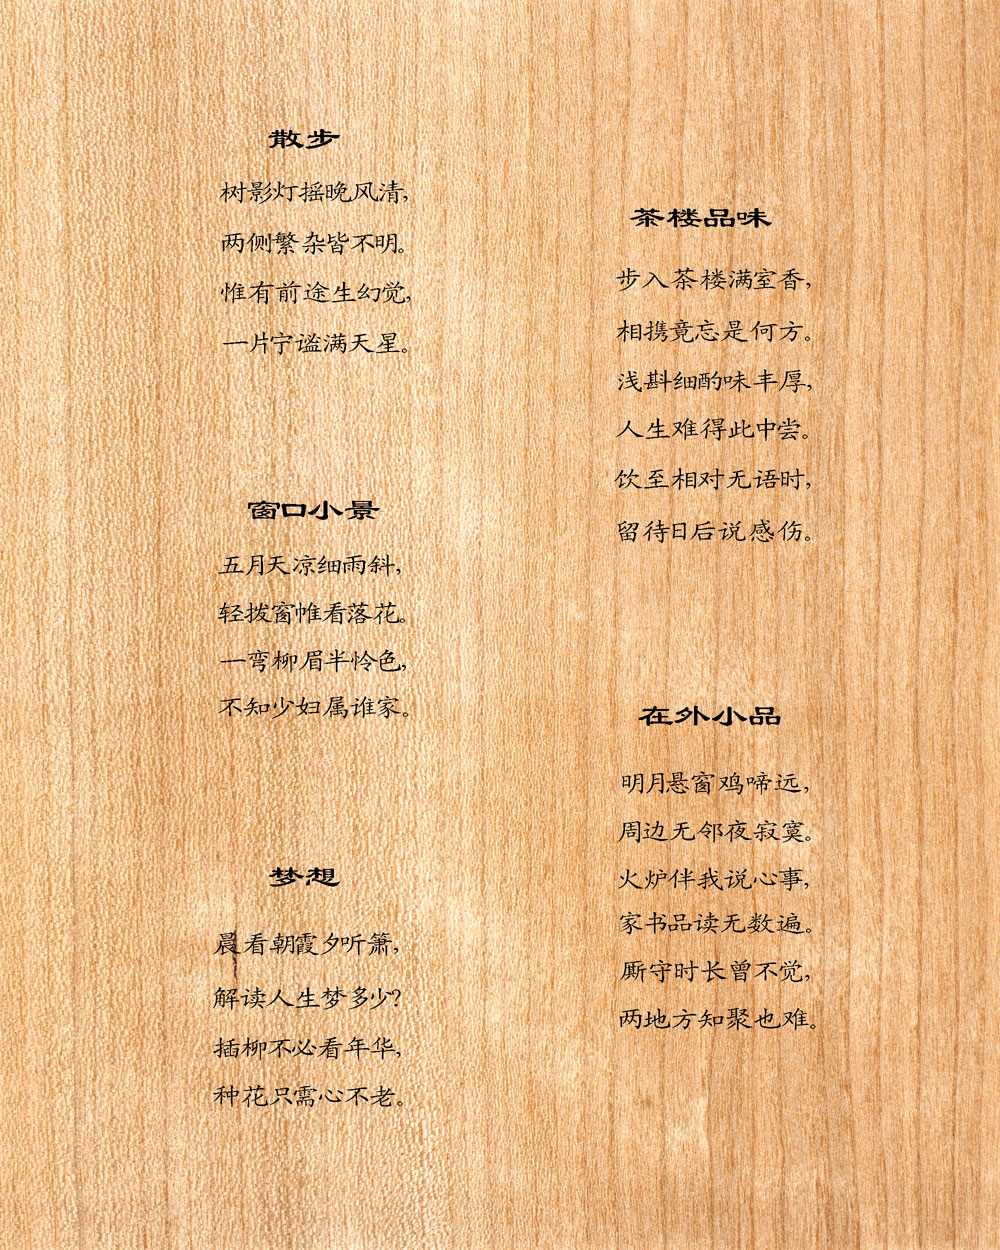 散步
树影灯摇晚风清，
两侧繁杂皆不明。
惟有前途生幻觉，
一片宁谧满天星。
窗口小景
五月天凉细雨斜，
轻拨窗帷看落花。
一弯柳眉半怜色，
不知少妇属谁家。
梦想
晨看朝霞夕听箫，
解读人生梦多少？
插柳不必看年华，
种花只需心不老。
茶楼品味
步入茶楼满室香，
相携竟忘是何方。
浅斟细酌味丰厚，
人生难得此中尝。
饮至相对无语时，
留待日后说感伤。
在外小品
明月悬窗鸡啼远，
周边无邻夜寂寞。
火炉伴我说心事，
家书品读无数遍。
厮守时长曾不觉，
两地方知聚也难。